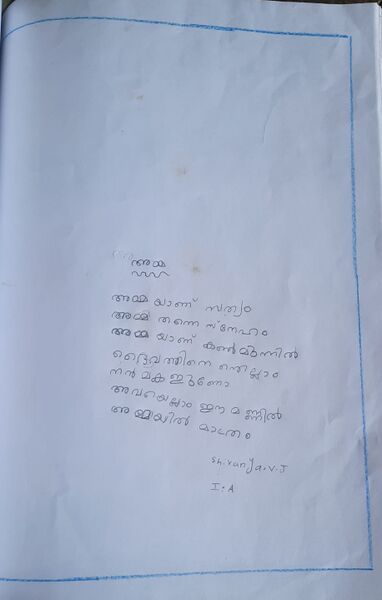 അമ്മ
അമ്മ യാണ് സത്യം
അമ്മ തന്നെ സ്നേഹം
അമ്മ യാണ് കൺ മുന്നിൽ
ദൈവത്തിനെ ന്തെല്ലാം
നൻ മക ളുണ്ടോ
അവയെല്ലാം ഈ മ ണ്ണിൽ
അ മ്മയിൽ മാത്രം
Shivanya.V.J
I:A